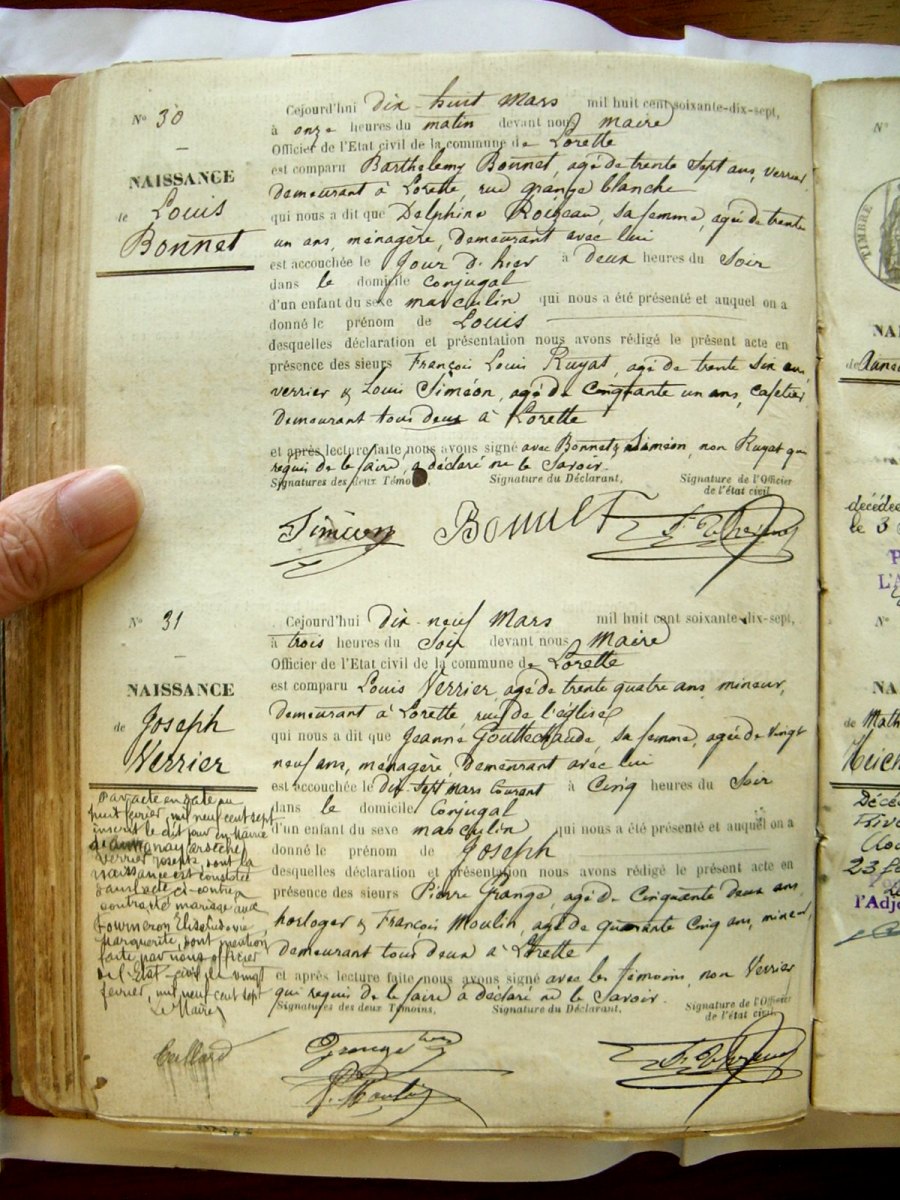 N° 30
NAISSANCE
de Louis
Bonnet
Cejourd'hui dix-huit Mars mil huit cent soixante-dix-sept,
à onze heures du matin devant nous Maire
Officier de l'Etat civil de la commune de Lorette
est comparu Barthelemy Bonnet, agé de trente Sept ans, verrier
demeurant à Lorette, rue grange blanche
qui nous a dit que Delphine sa femme, agée de trente
un ans, ménagère, demeurant avec lui
est accouchée le jour d'hier à deux heures du Soir
dans le domicile conjugal
d'un enfant du sexe masculin qui nous a été présenté et auquel on a
donné le prénom de Louis
desquelles déclaration et présentation nous avons rédigé le présent acte en
présence des sieurs François Louis Ruyat, agé de trente Six ans
verrier & Louis Siméon, agé de Cinquante un ans, cafetier
Demeurant tous deux à Lorette
et après lecture faite nous avons signé avec Bonnet & Siméon, non Ruyat qui
requis de le faire, a déclaré ne le Savoir.
Signatures des deux Témoins, Signature du Déclarant, Signature de l'Officier
de l'état civil
Siméon Bonnet
N° 31
NAISSANCE
de Joseph
Verrier
Cejourd'hui dix-neuf Mars mil huit cent soixante-dix-sept,
à trois heures du Soir devant nous Maire
Officier de l'Etat civil de la commune de Lorette
est comparu Louis Verrier, agé de trente quatre ans, mineur,
demeurant à Lorette, rue de l'église
qui nous a dit que Jeanne Gouttechaude, sa femme, agée de vingt
neuf ans, ménagère, demeurant avec lui
est accouchée le dix-Sept mars Courant à Cinq heures du Soir
dans le domicile Conjugal
d'un enfant du sexe masculin qui nous a été présenté et auquel on a
donné le prénom de Joseph
desquelles déclaration et présentation nous avons rédigé le présent acte en
présence des sieurs Pierre Grange, agé de Cinquante deux ans,
horloger & François Moulin, agé de quarante Cinq ans, mineur,
demeurant tous deux à Lorette
et après lecture faite nous avons signé avec les témoins, non Verrier
qui requis de le faire a déclaré ne le Savoir.
Signatures des deux Témoins, Signature du Déclarant, Signature de l'Officier
de l'état civil
Par acte en date du
huit février, mil neuf cent sept
inscrit le dit jour en Mairie
de Annonay ardèche
Verrier Joseph, dont la
naissance est constatée
dans l'acte ci-contre,
contracté mariage avec
Fourneron
Marguerite, dont mention
faite par nous officier
de l'Etat-civil le vingt
février, mil neuf cent sept
Le Maire
Grange
Moulin
N°
TIMBRE
NAI
décédée
le 3
L'A
N°
NA
de Math
Décé
23
l'Adj